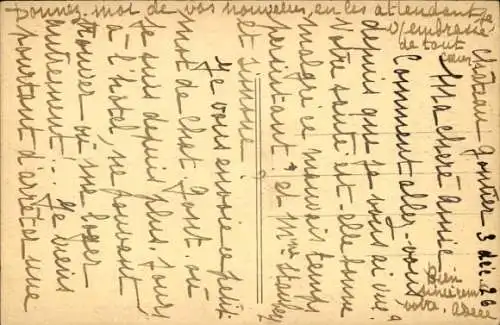 Château Gontier 3 dec 26
Ma chère amie
Comment allez-vous
depuis que je vous ai vue?
Votre santé est-elle bonne
malgré ce mauvais temps
persistant et Mme
et Simone.
Je vous envoie ce petit
mot de Chat. Gont. où
je suis depuis plus. jours
à l'hôtel, ne pouvant
trouver où me loger
autrement... Je viens
pourtant d'arrêter une
Donnez-moi de vos nouvelles, en les attendant je
v/embrasse
de tout
cœur
Bien
sincèrement
votre.